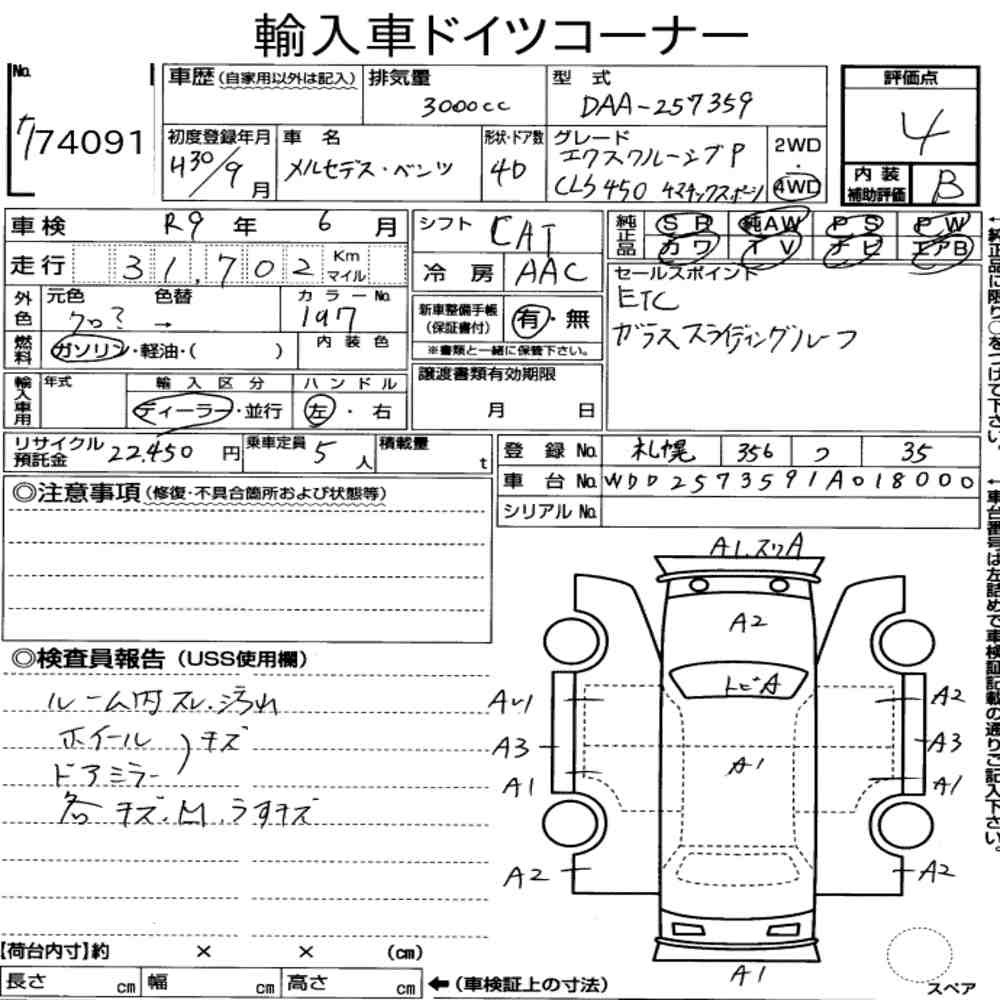 輸入車ドイツコーナー
No.
74091
車歴(自家用以外は記入)
排気量
3000cc
型式
DAA-257359
評価点
4
初度登録年月
H30/9月
車名
メルセデス・ベンツ
形状・ドア数
4D
グレード
エクスクルーシブP
CLS450 4マチックスポーツ
2WD
・
4WD
内装補助評価
B
車検 R9年 6月
シフト CAT
純正品
SR 純AW PS PW
カワ TV ナビ エアB
走行 31,702 Km マイル
冷房 AAC
セールスポイント
ETC
ガラススライディングルーフ
外色
元色
クロ?
色替
→
カラーNo.
197
新車整備手帳(保証書付)
有・無
※書類と一緒に保管下さい。
燃料
ガソリン・軽油・( )
内装色
輸入車用
年式
輸入区分
ディーラー・並行
ハンドル
左・右
譲渡書類有効期限
月 日
リサイクル預託金 22,450円
乗車定員 5人
積載量 t
登録No. 札幌 356 つ 35
車台No. WDD2573591A018000
シリアルNo.
◎注意事項(修復・不具合箇所および状態等)
◎検査員報告(USS使用欄)
ルーム内スレ・汚れ
ホイール
ドアミラー
)キズ
各キズ.凹.うすキズ
A1.スリA
A2
トビA
A1
A3
A1
A2
A2
A3
A1
A2
A1
スペア
【荷台内寸】約 × × (cm)
長さ cm 幅 cm 高さ cm
←(車検証上の寸法)
←純正品に限り○をつけて下さい。
←車台番号は左詰めで車検証記載の通りご記入下さい。